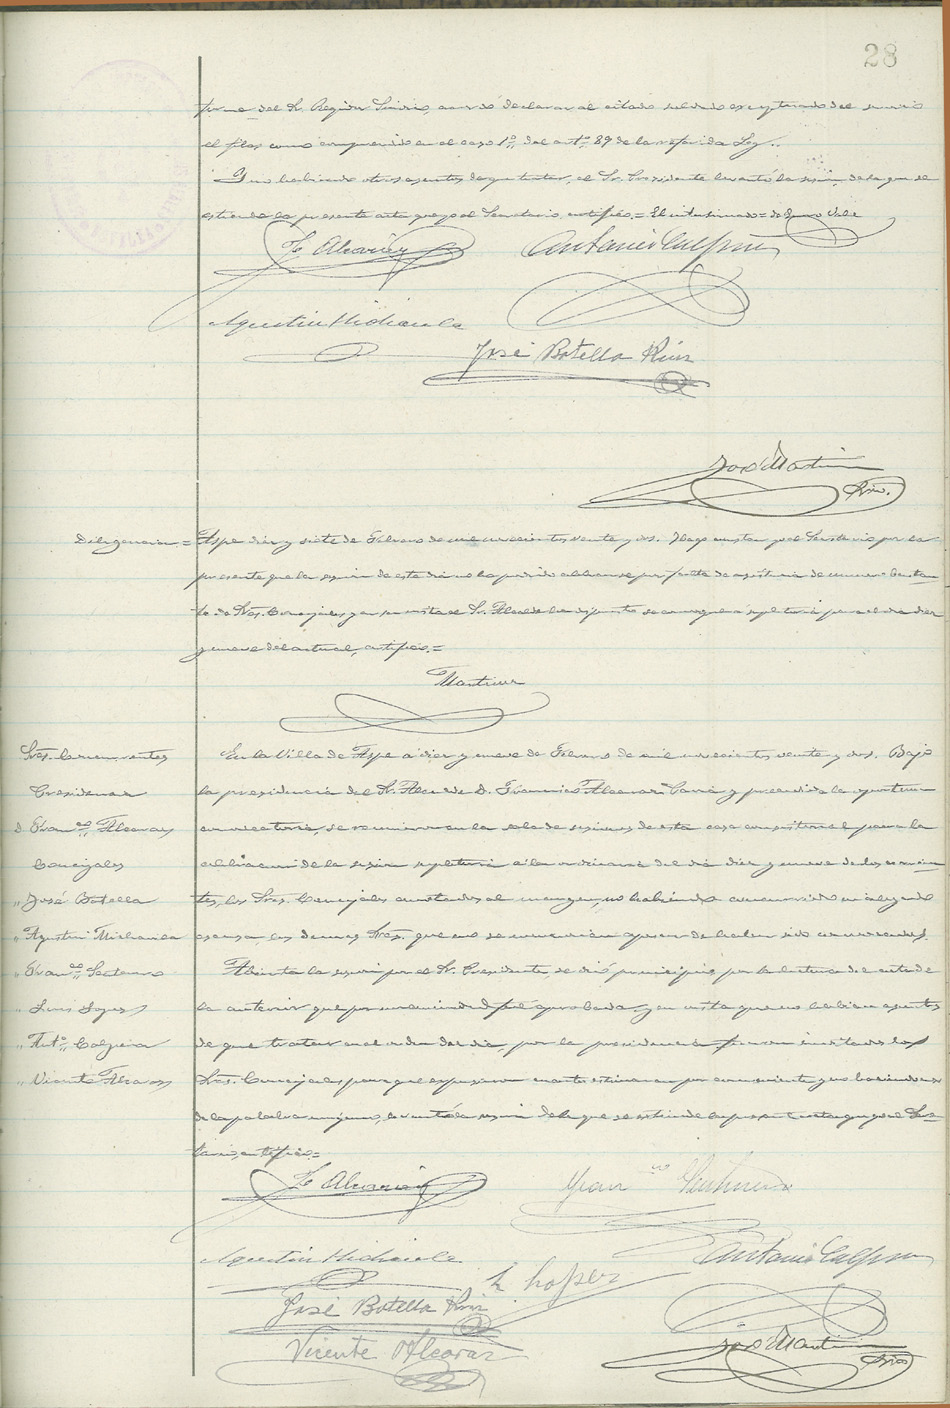 28
forme del Sr. Regidor Síndico, acordó declarar al citado soldado exceptuado del servicio
el filas como comprendido en el caso 1º del artº 89 de la referida Ley..
Y no habiendo otros asuntos de que tratar, el Sr. Presidente levantó la sesión, de la que se
extiende la presente acta que yo el Secretario, certifico.=
Alcaraz
Antonio Calpena
Agustin
José Botella Ruiz
José Martin
Diligencia.= Aspe diez y siete de Febrero de mil novecientos veinte y dos. Hago constar yo el Secretario por la
presente que la sesión de este día no ha podido celebrarse por falta de asistencia de número bastan-
te de Sres. Concejales y en su vista el Sr. Alcalde ha dispuesto se convoque a supletoria para el día diez
y nueve del actual, certifico.=
Martinez
Sres. Concurrentes
Presidencia
D. Franco Alcaraz
Concejales
" José Botella
" Agustín
" Franco
" Luis Lopez
" Anto Calpena
" Vicente Alcaraz
En la Villa de Aspe a diez y nueve de Febrero de mil novecientos veinte y dos. Bajo
la presidencia del Sr. Alcalde D. Francisco Alcaraz y precedida la oportuna
convocatoria, se reunieron en la sala de sesiones de esta casa consistorial para la
celebración de la sesión supletoria a la ordinaria del día diez y de los corrien-
tes, los Sres. Concejales anotados al margen, no habiendo concurrido ni alegado
excusa, los demas Sres. que no se mencionan apesar de haber sido convocados.
Abierta la sesión por el Sr. Presidente, se dió principio por la lectura del acta de
la anterior que por unanimidad fué aprobada, y en vista que no habian asuntos
de que tratar en el orden del día, por la presidencia fueron invitados los
Sres. Concejales para que expusieran cuanto estimaran por conveniente y no haciendo uso
de la palabra ninguno, levantó la sesión de la que se extiende la presente acta que yo el Secre-
tario, certifico.=
Alcaraz
Fran co
Agustin
L Lopez
Antonio Calpena
José Botella Ruiz
Vicente Alcaraz
José Martin